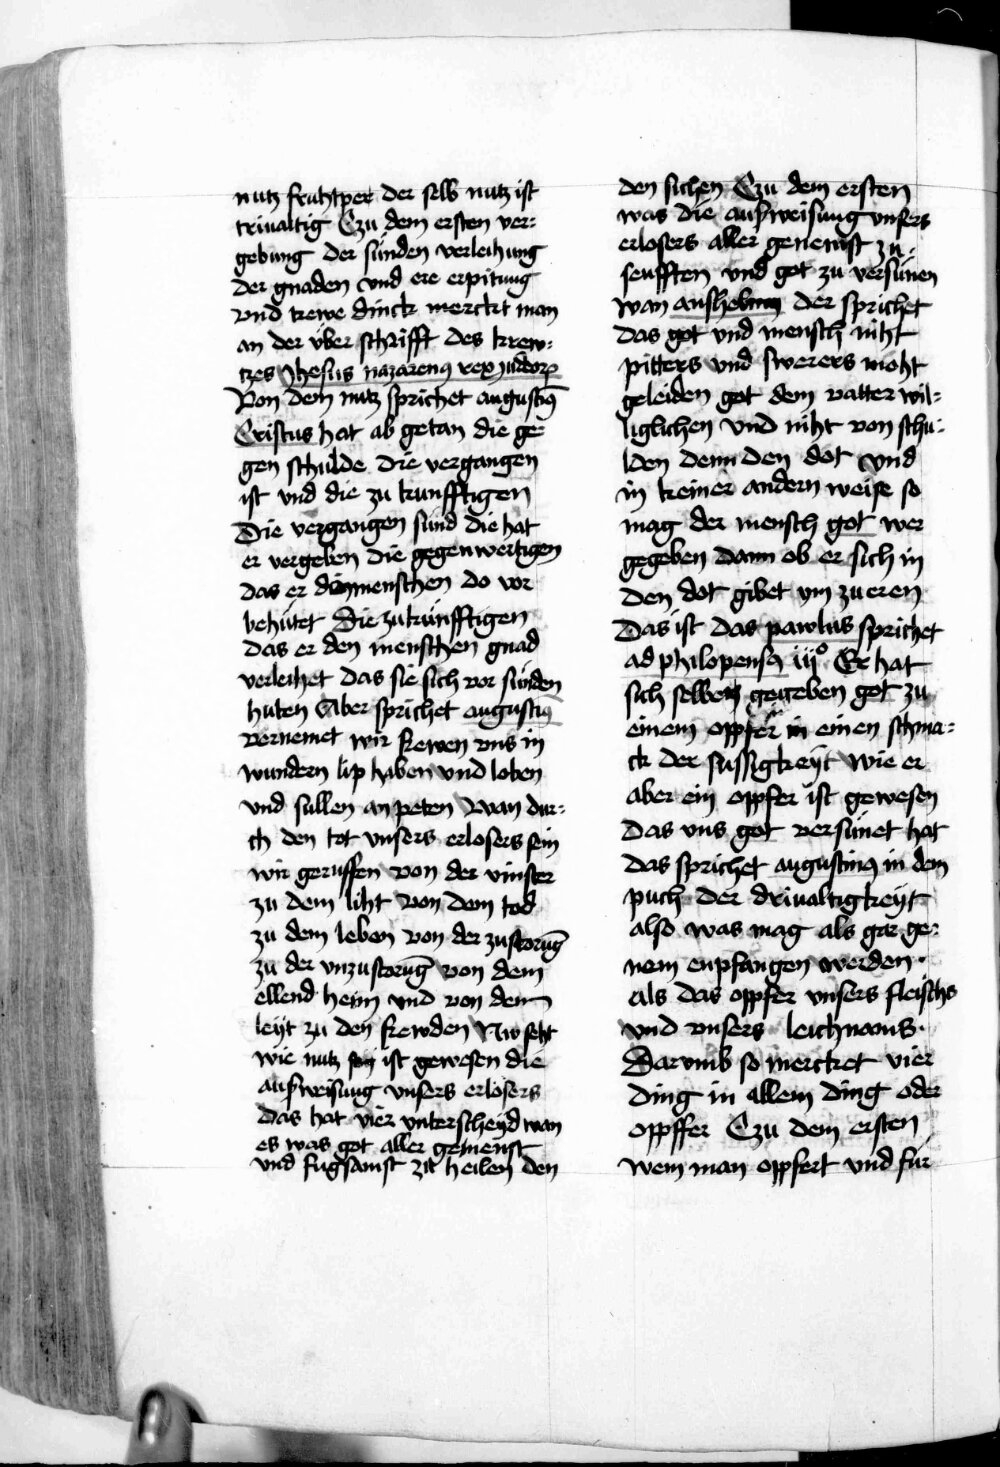 nutz fruhtper der selb nutz ist
triualtig Czu dem ersten ver-
gebung der sünden verleihung
der gnaden vnd ere erpitung
vnd trewe dinck merckt man
an der über schrifft des krew-
tzes Jhesus nazarenꝯ rex judeorꝝ
Von dem nutz sprichet augustinꝯ
Cristus hat ab getan die ge-
gen schulde die vergangen
ist vnd die zu kunfftigen
Die vergangen sünd die hat
er vergeben die gegenwertigen
das er den menschen do vor
behütet Die zukünfftigen
das er den menschen gnad
verleihet das sie sich vor sünden
huten Aber sprichet augustinꝯ
vernemet wir frewen vns in
wundern lip haben vnd loben
vnd sullen an peten Wan dur-
ch den tot vnsers erlosers sein
wir geruffen von der vinster
zu dem liht von dem tod
zu dem leben von der zustorūg
zu der vnzustorūg von dem
ellend heim vnd von dem
leyt zu den frewden Nw seht
wie nutz ist gewesen die
aufweisung vnsers erlosers
das hat vier vnterscheyd wan
es was got aller gemenst
vnd fugsamst zu heilen den
den sichen Czu dem ersten
was die aufweisung vnsers
erlosers aller genemst zu
seufften vnd got zu versünen
wan anshelmꝯ der sprichet
das got vnd mensch niht
pitters vnd swerers moht
geleiden got dem vatter wil-
liglichen vnd niht von schu-
lden denn den dot vnd
in keiner andern weise so
mag der mensch got wer
gegeben dann ob er sich in
den dot gibet ym zu eren
Das ist das pawlus sprichet
ad philopensꝫ iijº Er hat
sich selben gegeben got zu
einem oppfer in einen schma-
ck der süssigkeyt Wie er
aber ein oppfer ist gewesen
Das vns got versünet hat
das sprichet augustinꝯ in dem
puch der driualtigkeyt
also was mag als gar ge-
nem enpfangen werden
als das oppfer vnsers fleischs
vnd vnsers leichnams
Darvmb so mercket vier
ding in allem ding oder
oppffer Czu dem ersten
wem man oppfert vnd für